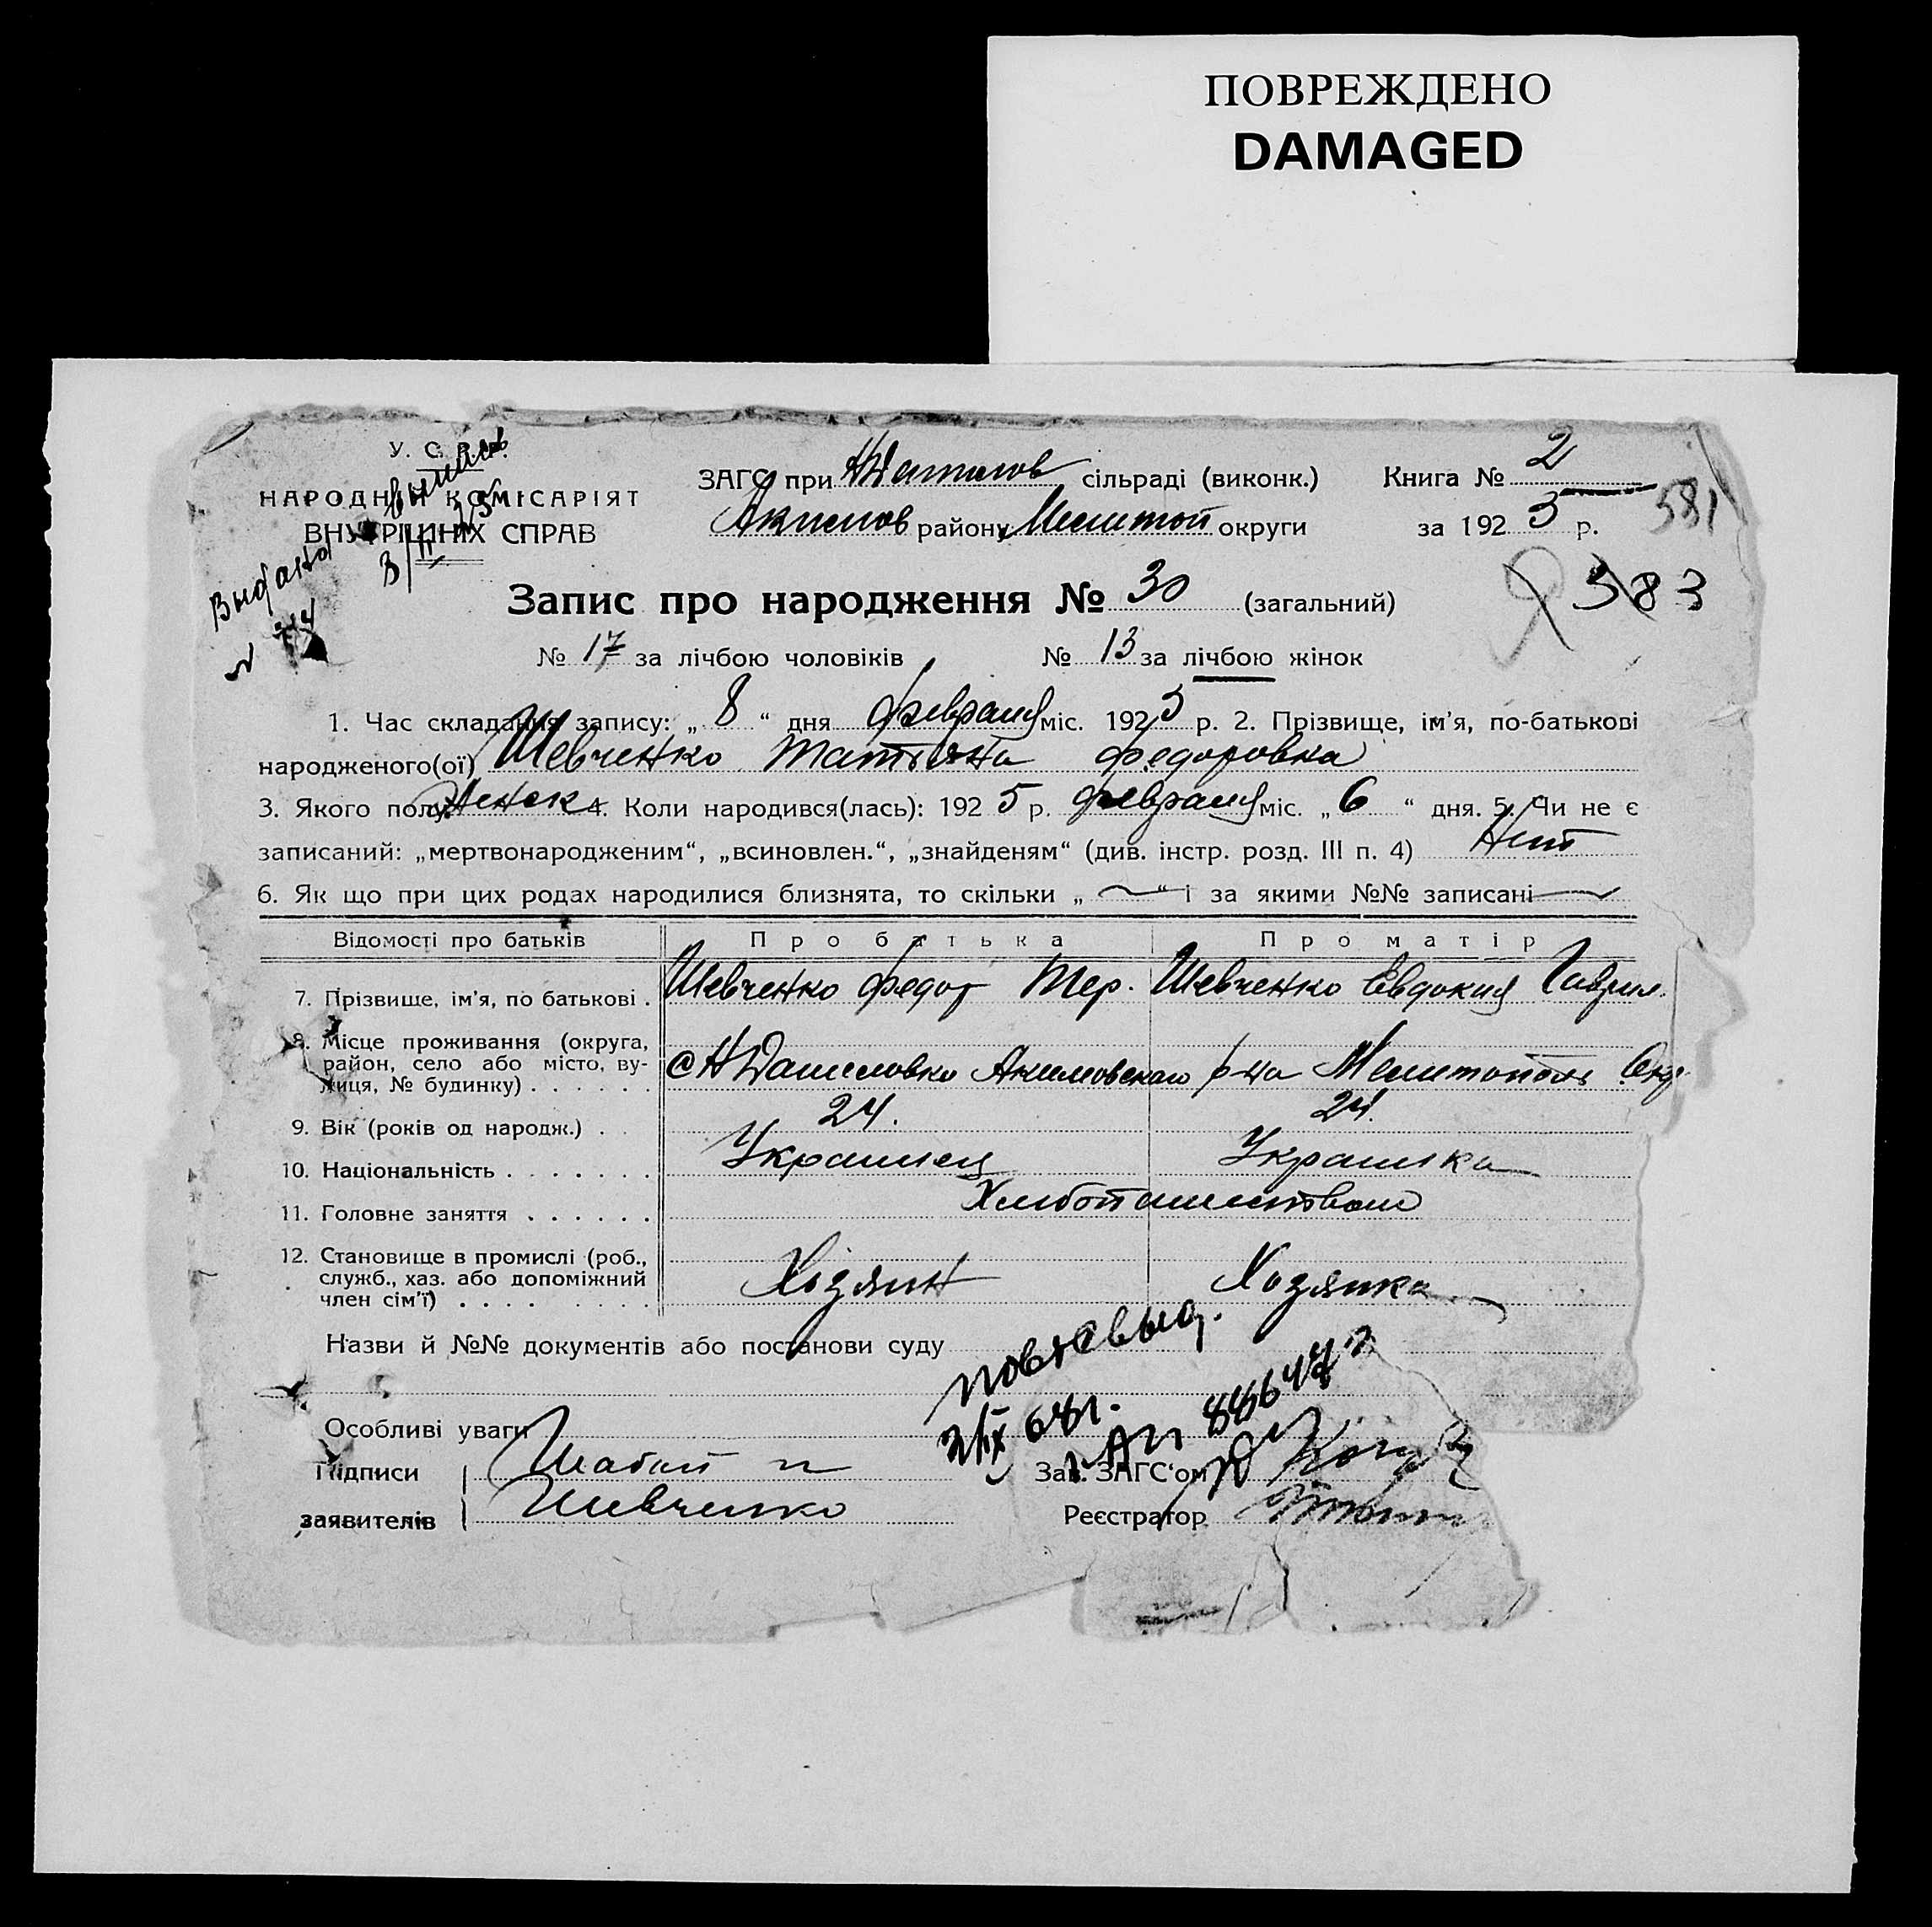 ПОВРЕЖДЕНО
DAMAGED
У. С. Р. Р.
НАРОДНІЙ КОМІСАРІЯТ
ВНУТРІШНІХ СПРАВ
Выдана выпись
ЗАГС при НДанилов сільраді (виконк.) Книга № 2
Акимов району Мелитоп округи за 1925 р. 581
Запис про народження № 30 (загальний) 583
№ 17 за лічбою чоловіків № 13 за лічбою жінок
1. Час складання запису: „8“ дня февраля міс. 1925 р. 2. Прізвище, ім’я, по-батькові
народженого(ої) Шевченко Татьяна Федоровна
3. Якого полу Женск 4. Коли народився(лась): 1925 р. февраля міс. „6“ дня. 5. Чи не є
записаний: „мертвонародженим“, „всиновлен.“, „знайденям“ (див. інстр. розд. III п. 4) Нет
6. Як що при цих родах народилися близнята, то скільки „—“ і за якими №№ записані —
Відомості про батьків Про батька Про матір
7. Прізвище, ім’я, по батькові . Шевченко Федор Тер. Шевченко Евдокия Гаврил.
8. Місце проживання (округа,
район, село або місто, ву-
лиця, № будинку) . . . . . . с НДаниловка Акимовского р-на Мелитополь Окр.
9. Вік (років од народж.) . . 24. 24.
10. Національність . . . . . . . Украинец Украинка
11. Головне заняття . . . . . . Хлебопашество
12. Становище в промислі (роб.,
служб., хаз. або допоміжний
член сім’ї) . . . . . . . . Хозяин Хозяйка
Назви й №№ документів або постанови суду
повт выд.
Особливі уваги
2/IX 68 г. 886472
Підписи Зав. ЗАГС‘ом
заявителів Шевченко Реєстратор